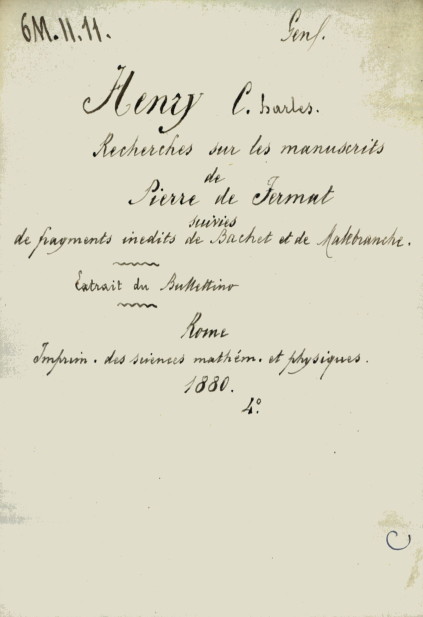 6M.II.11.
Genf.
Henry C.harles.
Recherches sur les manuscrits
de
Pierre de Fermat
suivies
de fragments inédits de Bachet et de Malebranche.
Extrait du Bullettino
Rome
Imprim. des sciences mathém. et physiques.
1880.
4°